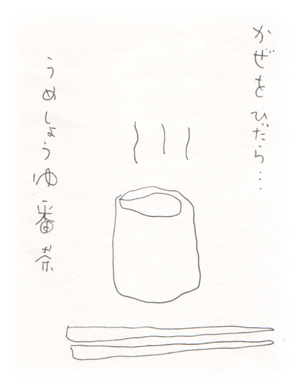 かぜをひいたら…
うめしょうゆ番茶